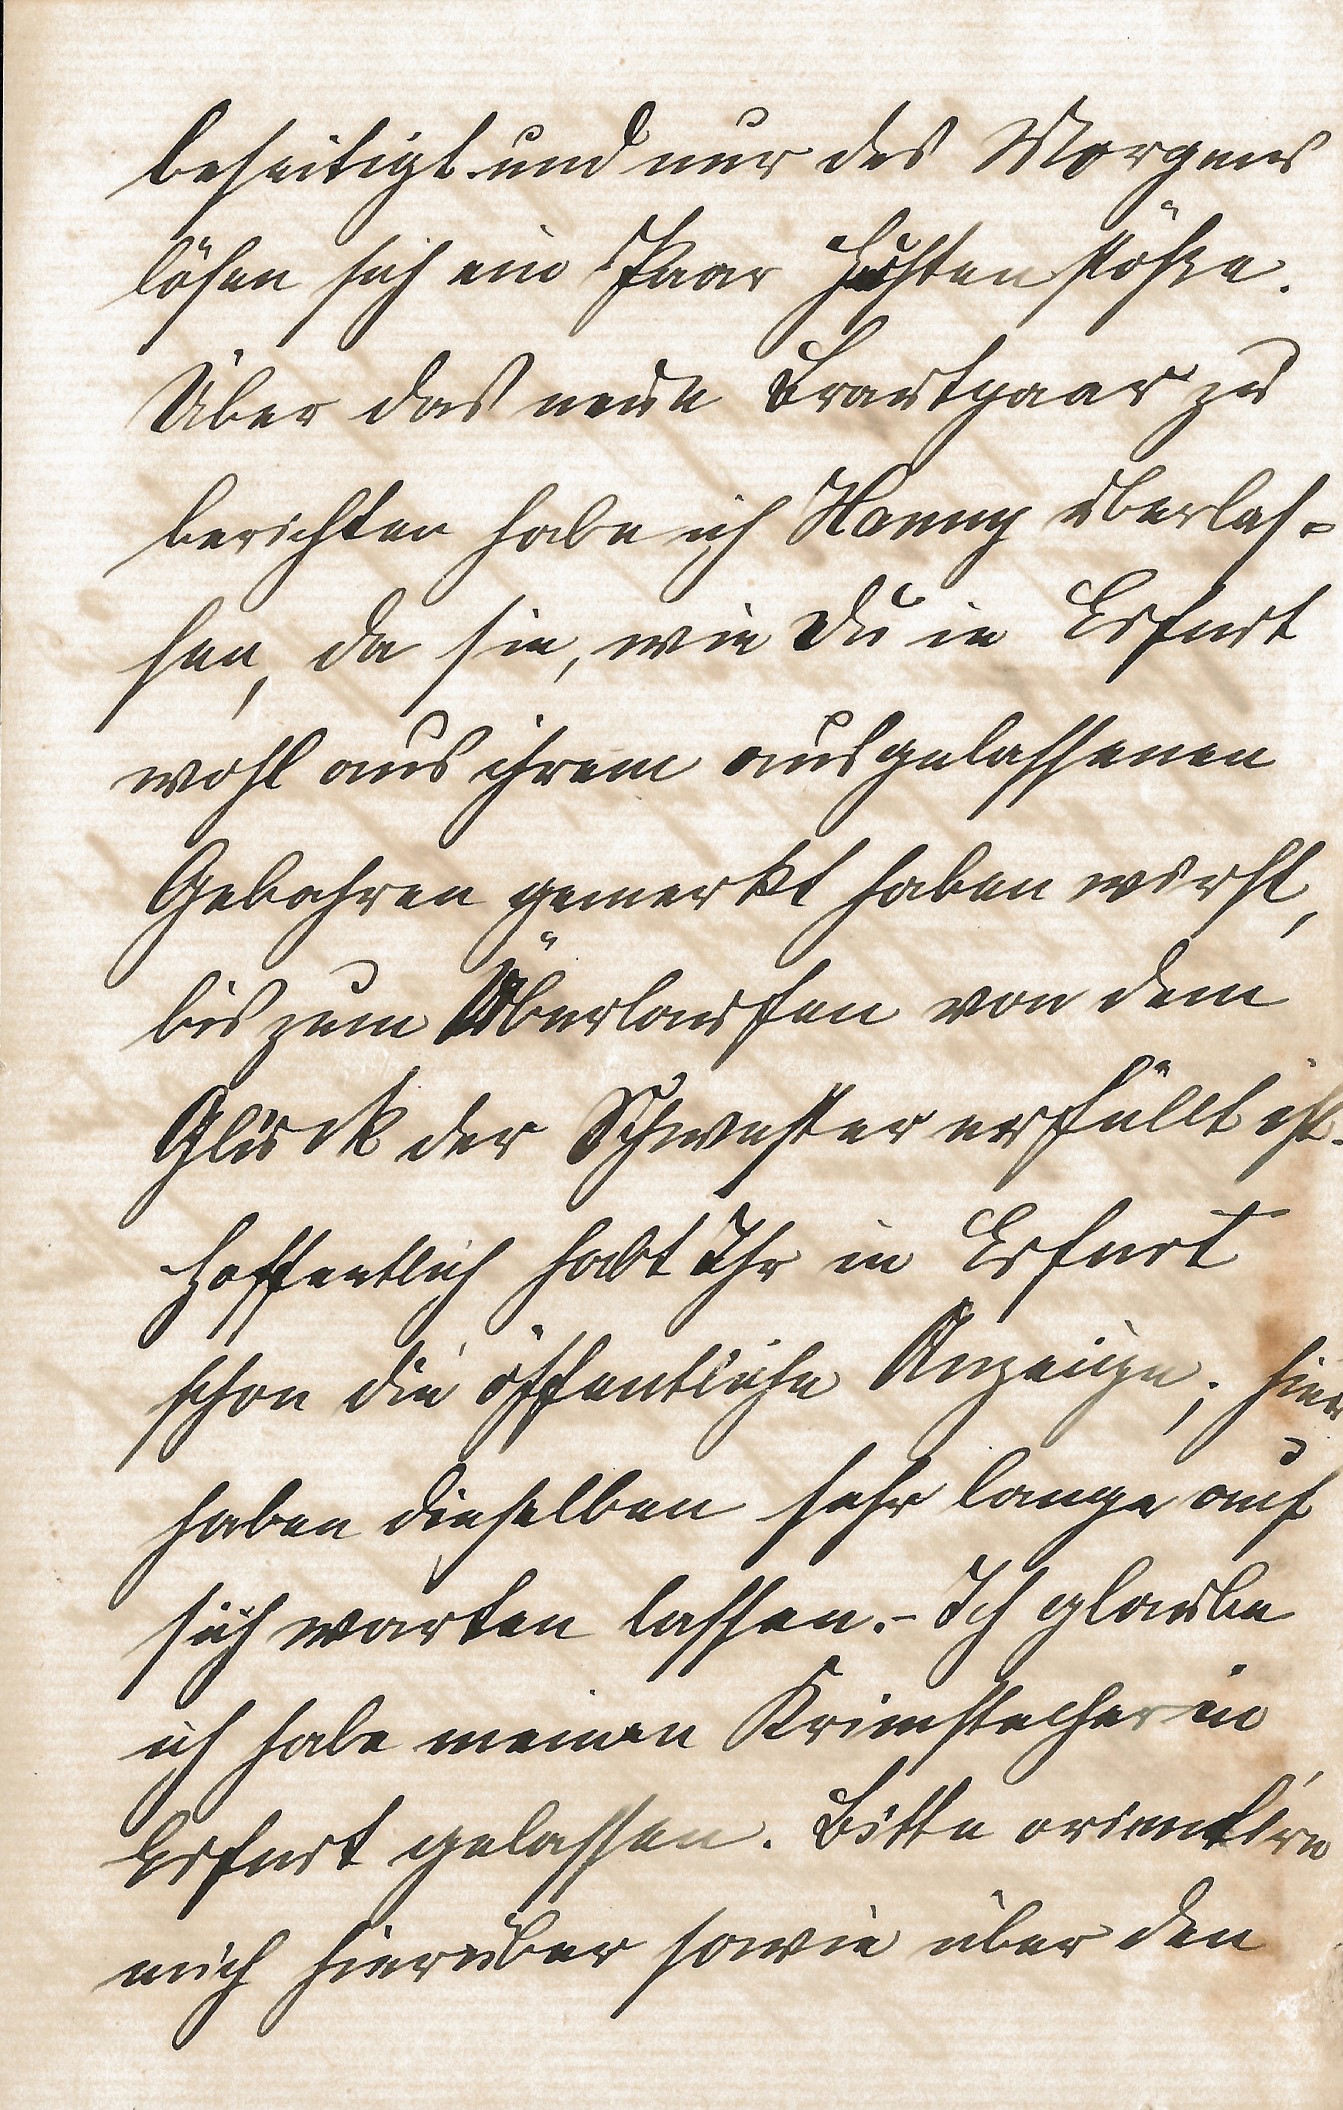 beseitigt und nur des Morgens
lösen sich ein Paar Hustenstöße.
Über das neue Brautpaar zu
berichten habe ich Nanny überlas-
sen, da sie, wie Du in Erfurt
wohl aus ihrem ausgelassenen
Gebahren gemerkt haben wirst,
bis zum Überlaufen von dem
Glück der Schwester erfüllt ist.
Hoffentlich habt Ihr in Erfurt
schon die öffentliche Anzeige; hier
haben dieselben sehr lange auf
sich warten lassen. - Ich glaube
ich habe meinen Krimstecher in
Erfurt gelassen. Bitte orientire
mich hierüber sowie über den